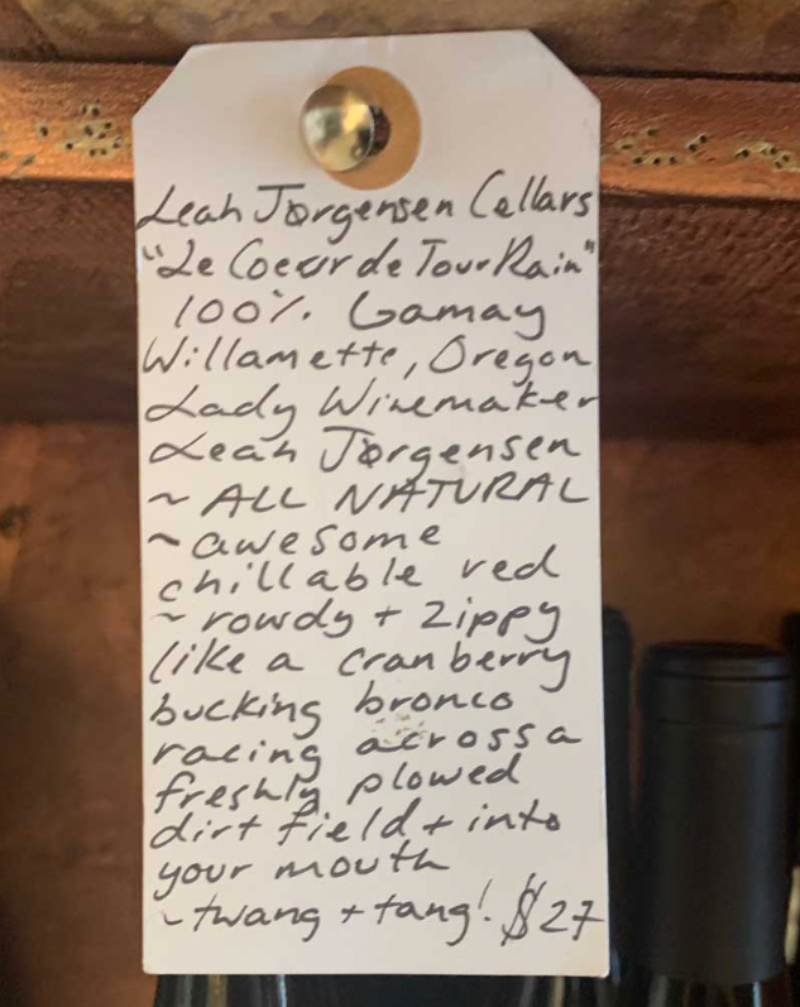 Leah Jørgensen Cellars
"Le Coeur de Tour Rain"
100% Gamay
Willamette, Oregon
Lady Winemaker
Leah Jørgensen
~ ALL NATURAL
~ awesome
chillable red
~ rowdy + zippy
like a cranberry
bucking bronco
racing across a
freshly plowed
dirt field + into
your mouth
~ twang + tang! $27